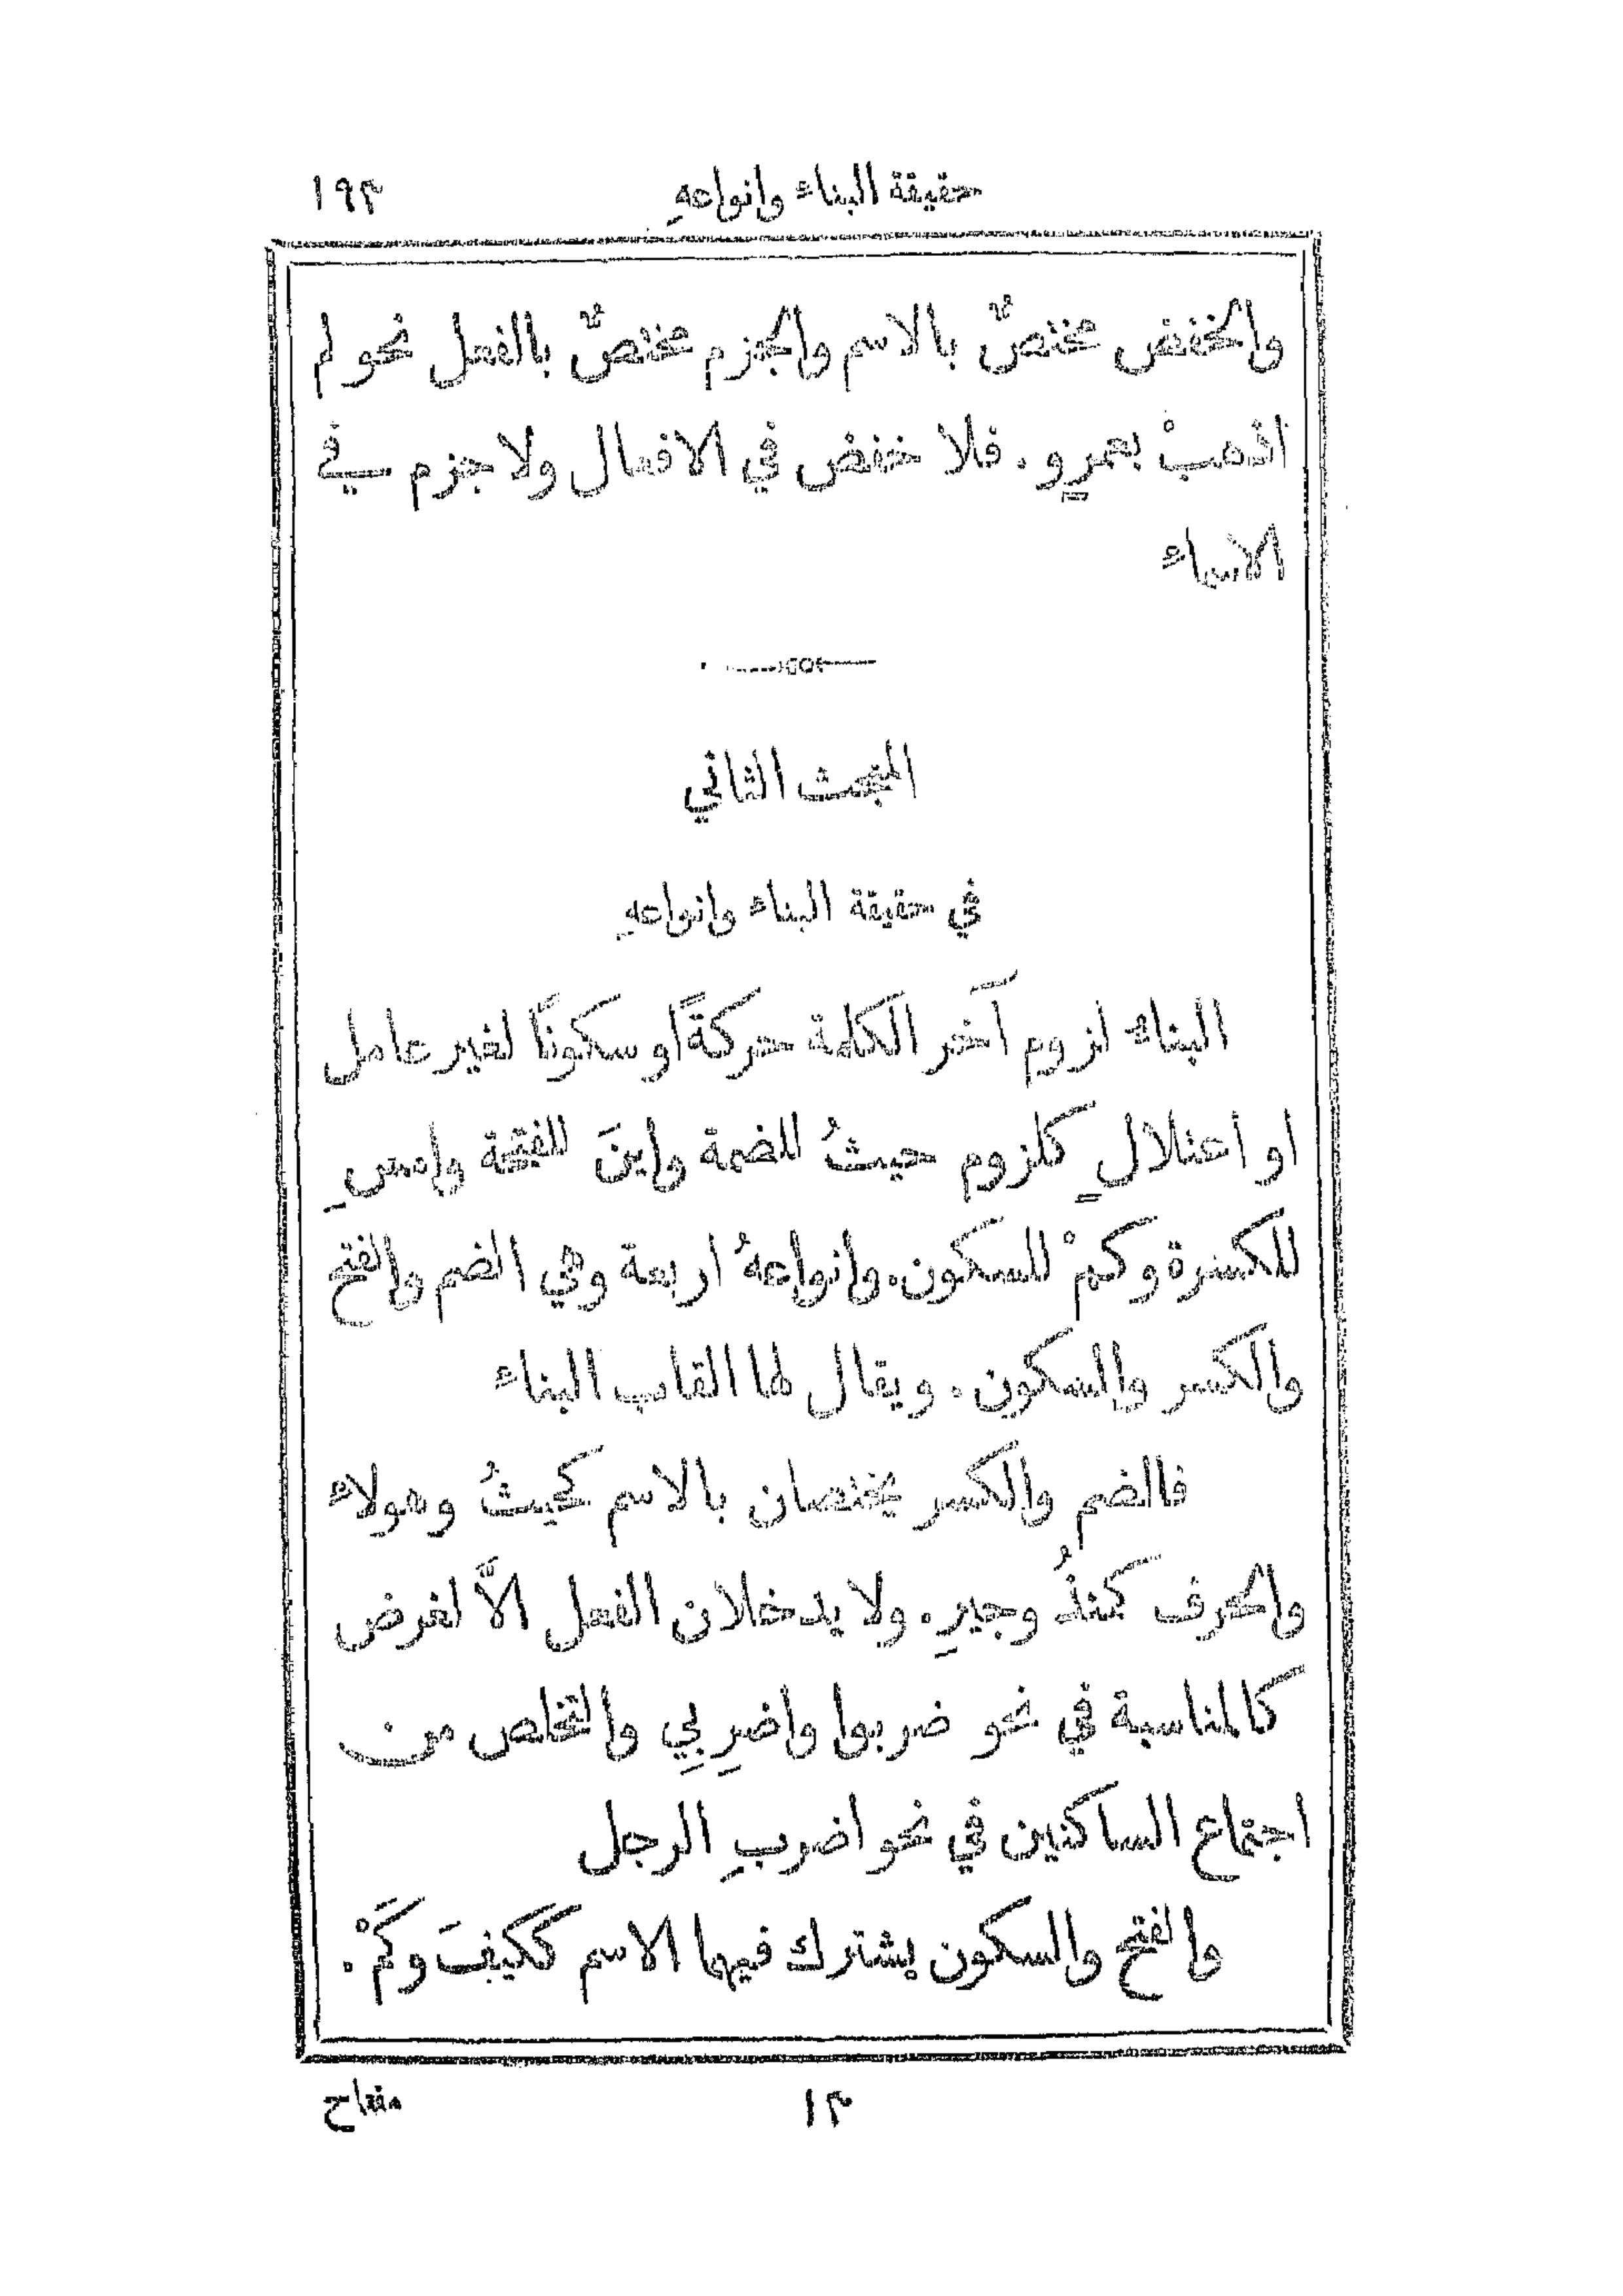 حقيقة البناء وانواعهِ ١٩٣
والخفض مختصٌّ بالاسم والجزم مختصٌّ بالفعل نحو لم
اذهبْ بعمرٍو. فلا خفض في الافعال ولا جزم في
الاسماء
المبحث الثاني
في حقيقة البناء وانواعهِ
البناء لزوم آخر الكلمة حركةً او سكونًا لغير عامل
او اعتلالٍ كلزوم حيثُ للضمة واينَ للفتحة وامسِ
للكسرة وكمْ للسكون. وانواعهُ اربعة وهي الضم والفتح
والكسر والسكون. ويقال لها القاب البناء
فالضم والكسر يختصان بالاسم كحيثُ وهولاء
والحرف كمنذُ وجيرِ. ولا يدخلان الفعل الَّا لغرض
كالمناسبة في نحو ضربوا واضرِبِي والتخلص من
اجتماع الساكنين في نحو اضربِ الرجل
والفتح والسكون يشترك فيهما الاسم ككيفَ وكَمْ.
١٣ مفتاح